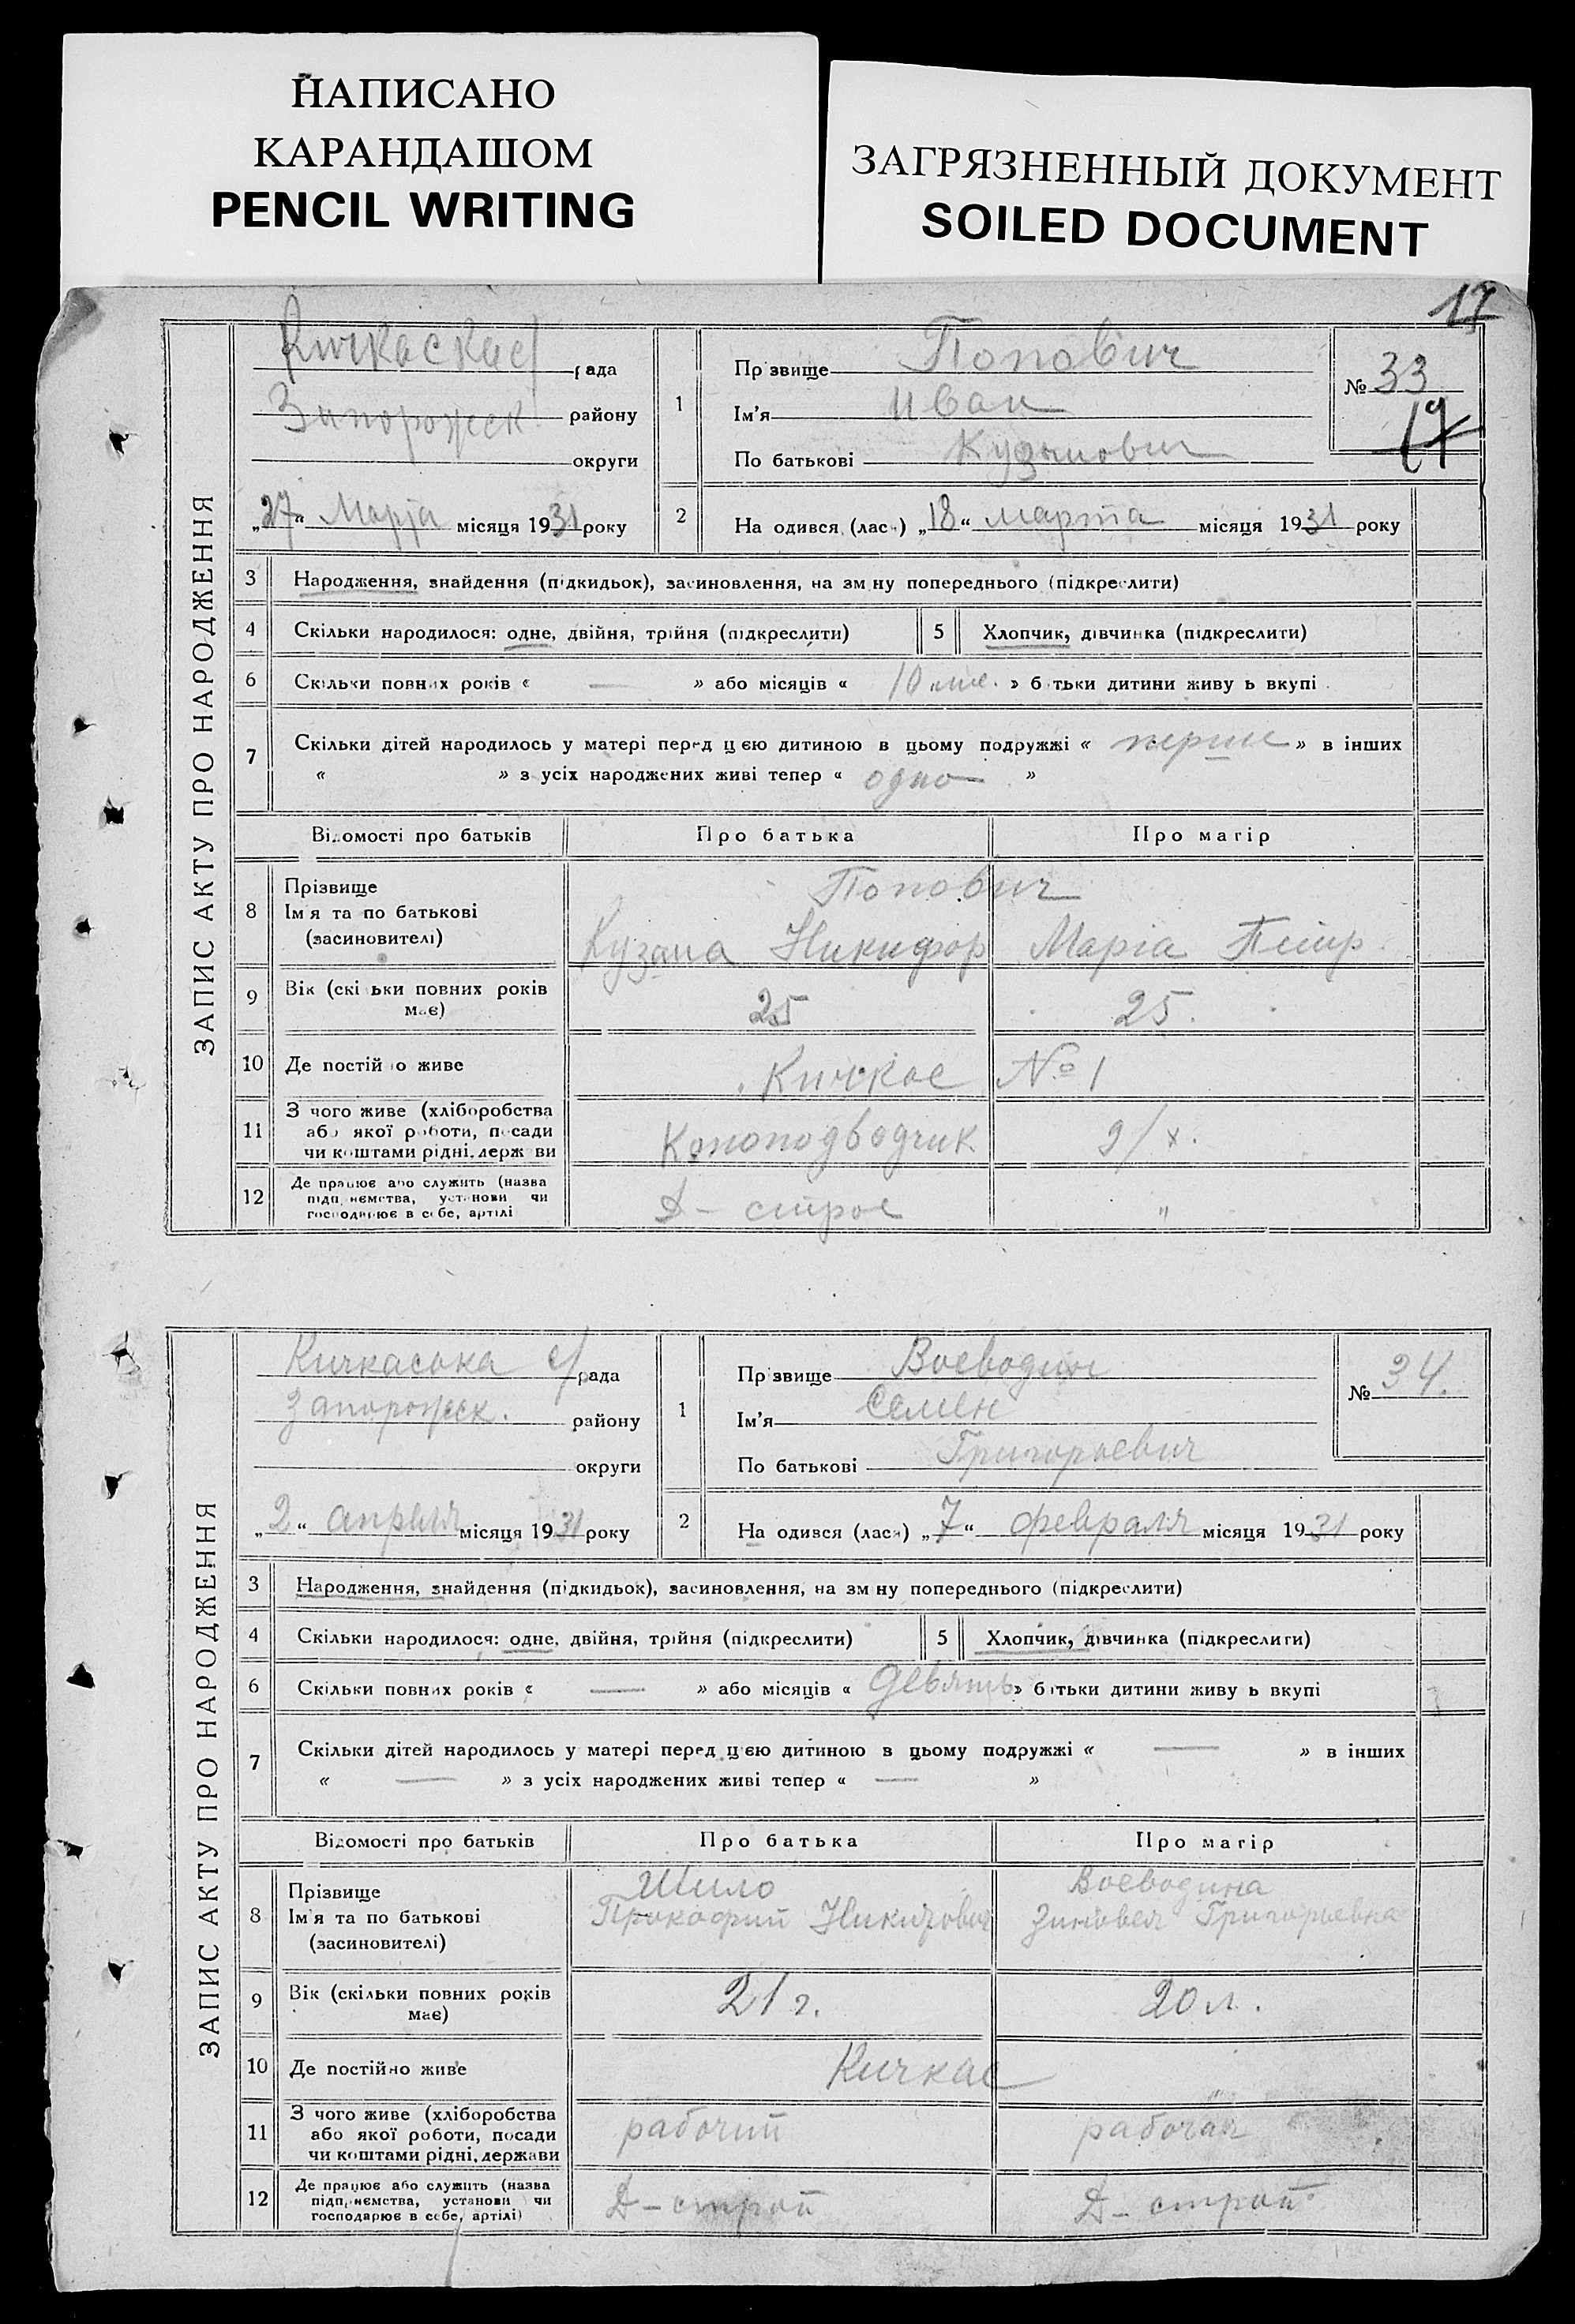 НАПИСАНО
КАРАНДАШОМ
PENCIL WRITING
ЗАГРЯЗНЕННЫЙ ДОКУМЕНТ
SOILED DOCUMENT
17
ЗАПИС АКТУ ПРО НАРОДЖЕННЯ
Кичкаская с/рада
Запорожск. району
округи
„27“ Марта місяця 1931 року
1
Прізвище Попович
Ім'я Иван
По батькові Кузьмович
№ 33
17
2
На одився (лася) „18“ марта місяця 1931 року
3 Народження, знайдення (підкидьок), засиновлення, на зм ну попереднього (підкреслити)
4 Скільки народилося: одне, двійня, трійня (підкреслити) 5 Хлопчик, дівчинка (підкреслити)
6 Скільки повних років « — » або місяців « 10 мис. » б тьки дитини живу ь вкупі
7 Скільки дітей народилось у матері перед цією дитиною в цьому подружжі « перше » в інших
« » з усіх народжених живі тепер « одно »
Відомості про батьків Про батька Про матір
8 Прізвище
Ім'я та по батькові
(засиновителі)
Попович
Кузьма Никифор Марія Петр.
9 Вік (скі ьки повних років
має)
25 25.
10 Де постій о живе Кичкас №1
11 З чого живе (хліборобства
або якої роботи, посади
чи коштами рідні, держ ви
Коноподводчик д/х.
12 Де працює або служить (назва
підприємства, установи чи
господарює в себе, артілі
Д-строе "
ЗАПИС АКТУ ПРО НАРОДЖЕННЯ
Кичкаська с/рада
Запорожск. району
округи
„2“ апреля місяця 1931 року
1
Прізвище Воеводин
Ім'я Семен
По батькові Григорьевич
№ 34.
2
На одився (лася) „7“ февраля місяця 1931 року
3 Народження, знайдення (підкидьок), засиновлення, на зм ну попереднього (підкреслити)
4 Скільки народилося: одне, двійня, трійня (підкреслити) 5 Хлопчик, дівчинка (підкреслити)
6 Скільки повних років « — » або місяців « девять » батьки дитини живу ь вкупі
7 Скільки дітей народилось у матері перед цією дитиною в цьому подружжі « — » в інших
« — » з усіх народжених живі тепер « — »
Відомості про батьків Про батька Про матір
8 Прізвище
Ім'я та по батькові
(засиновителі)
Шило Воеводина
Прокофий Григорьевна
9 Вік (скільки повних років
має)
21 г. 20 л.
10 Де постійно живе Кичкас "
11 З чого живе (хліборобства
або якої роботи, посади
чи коштами рідні, держави
рабочий рабочая
12 Де працює або служить (назва
підприємства, установи чи
господарює в себе, артілі)
Д-строй Д-строй